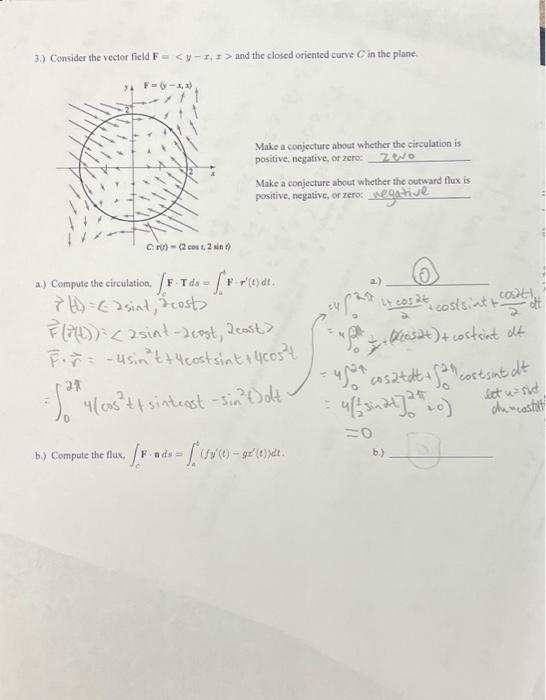 3.) Consider the vector field F = < y − x, x > and the closed oriented curve C in the plane.
y
F = ⟨y − x, x⟩
2
2
x
C: r(t) = ⟨2 cos t, 2 sin t⟩
Make a conjecture about whether the circulation is
positive, negative, or zero: zero
Make a conjecture about whether the outward flux is
positive, negative, or zero: negative
a.) Compute the circulation, ∫_C F · T ds = ∫_a^b F · r′(t) dt.
a.) 0
r⃗′(t) = <-2sint, 2cost>
F⃗(r⃗(t)) = <2sint-2cost, 2cost>
F⃗·r⃗ = -4sin²t+4costsint+4cos²t
= ∫_0^2π 4(cos²t+sintcost-sin²t)dt
=4∫_0^2π (1+cos2t)/2 + costsint + (cos2t-1)/2 dt
+ costsint dt
= 4∫_0^2π cos2tdt + ∫_0^2π costsint dt
let u=sint
du=costdt
= 4([½sin2t]_0^2π +0)
=0
b.) Compute the flux, ∫_C F · n ds = ∫_a^b (fy′(t) − gx′(t))dt.
b.)